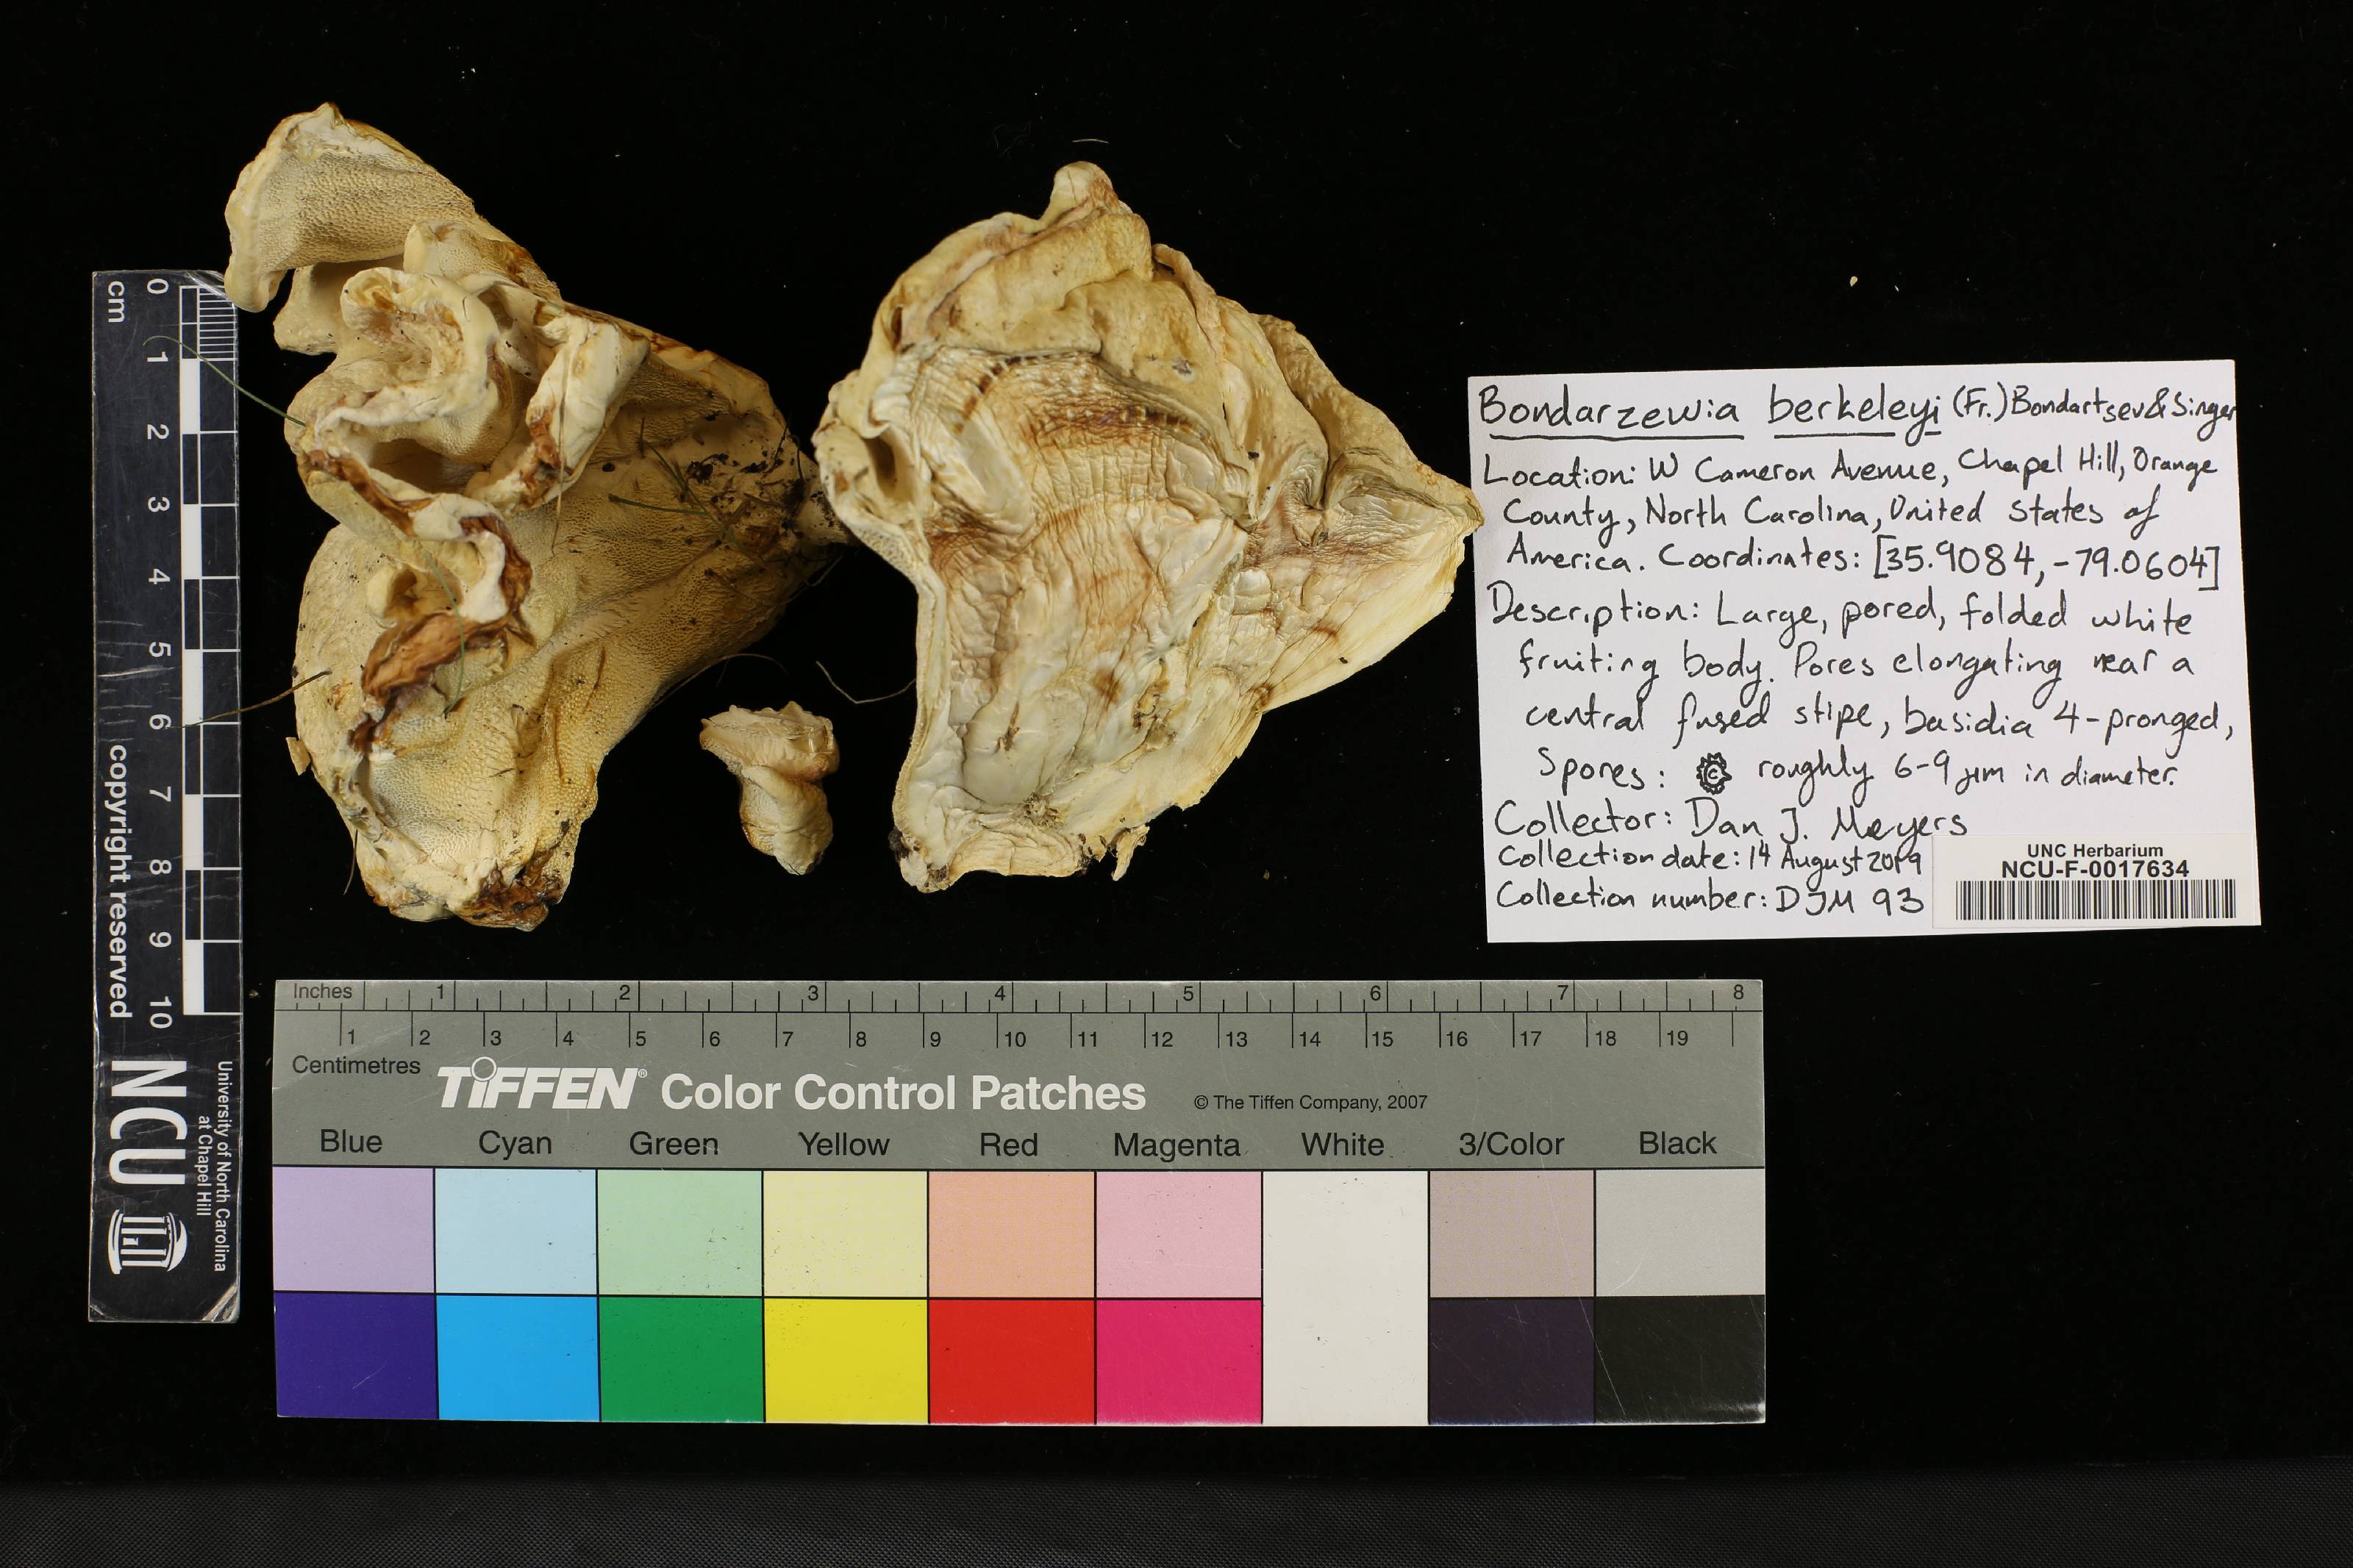 Bondarzewia berkeleyi (Fr.) Bondartsev & Singer
Location: W Cameron Avenue, Chapel Hill, Orange
County, North Carolina, United States of
America. Coordinates: [35.9084, -79.0604]
Description: Large, pored, folded white
fruiting body. Pores elongating near a
central fused stipe, basidia 4-pronged,
Spores: roughly 6-9 µm in diameter.
Collector: Dan J. Meyers
Collection date: 14 August 2019
Collection number: DJM 93
UNC Herbarium
NCU-F-0017634
cm
0 1 2 3 4 5 6 7 8 9 10
copyright reserved
NCU
University of North Carolina
at Chapel Hill
Inches 1 2 3 4 5 6 7 8
1 2 3 4 5 6 7 8 9 10 11 12 13 14 15 16 17 18 19
Centimetres
TIFFEN® Color Control Patches © The Tiffen Company, 2007
Blue Cyan Green Yellow Red Magenta White 3/Color Black